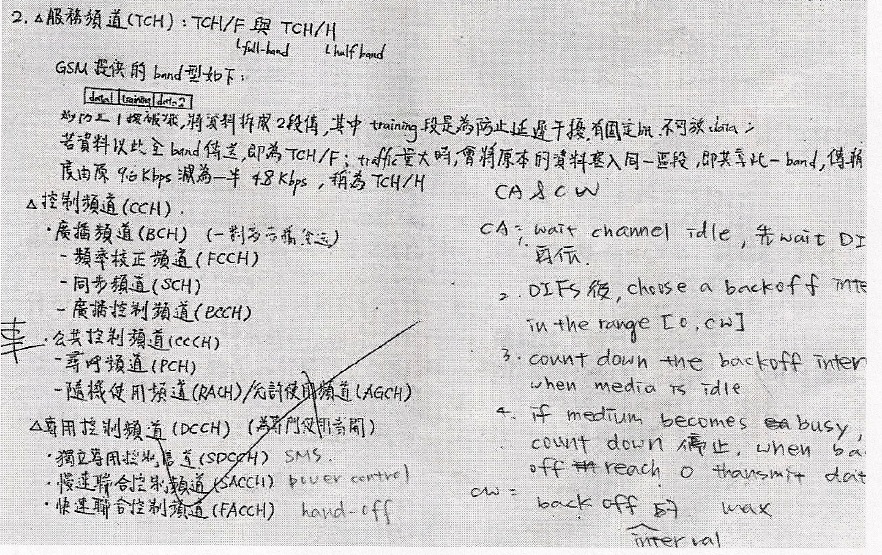 2. △服務頻道(TCH)：TCH/F 與 TCH/H
full-band half band
GSM 提供的 band 型如下：
data1 training data2
將資料拆成2段傳，其中 training 段是為防止延遲干擾有固定bit，不可放data；
若資料以此全band傳送，即為TCH/F；traffic量大時，會將原本的資料塞入同一區段，即共享此一band，傳輸
度由原 9.6 Kbps 減為一半 4.8 Kbps，稱為 TCH/H
△控制頻道(CCH).
·廣播頻道(BCH) (一對多
-頻率校正頻道(FCCH)
-同步頻道(SCH)
-廣播控制頻道(BCCH)
·公共控制頻道(CCCH)
-尋呼頻道(PCH)
-隨機使用頻道(RACH)/允許使用頻道(AGCH)
△專用控制頻道(DCCH)
·獨立專用控制頻道(SDCCH) SMS.
·慢速聯合控制頻道(SACCH) power control
·快速聯合控制頻道(FACCH) hand-off
CA & CW
CA: 1. wait channel idle, 先 wait DI
再傳.
2. DIFS後, choose a backoff inte
in the range [0, CW]
3. count down the backoff inter
when media is idle
4. if medium becomes busy,
count down 停止, when ba
off reach 0 transmit dat
CW = back off 的 max
interval